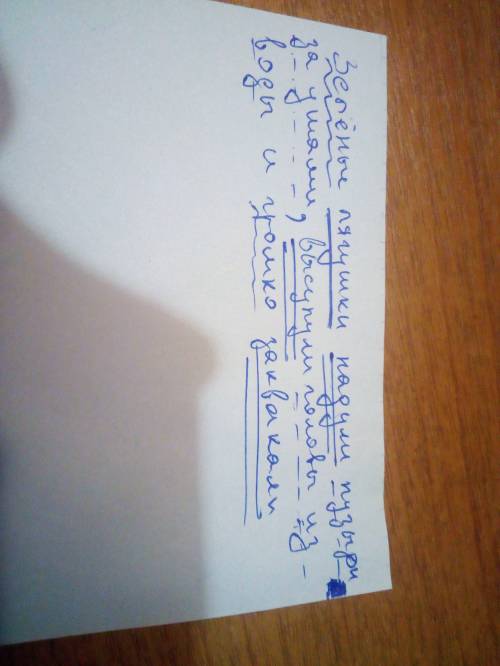 Зелёные лягушки надули пузыри
за ушами, высупули головы из -
воды и громко заквакали